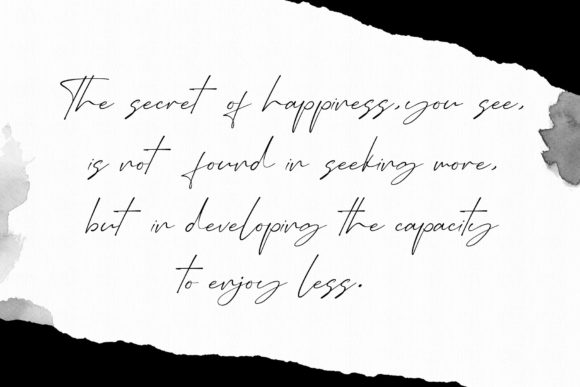 The secret of happiness, you see,
is not found in seeking more,
but in developing the capacity
to enjoy less.